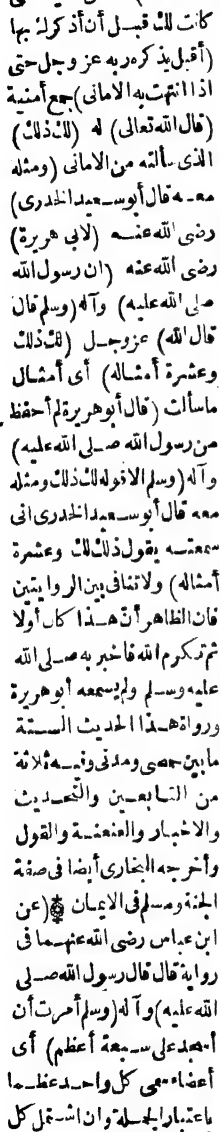 كانت لك قبل أن أذكرك بها
(أقبل يذكره ربه عز وجل حتى
اذا انتهت به الامانى) جمع أمنية
(قال الله تعالى) له (لك ذلك)
الذى سألته من الامانى (ومثله
معه قال أبو سعيد الخدرى)
رضى الله عنه (لابى هريرة)
رضى الله عنه (ان رسول الله
صلى الله عليه) وآله (وسلم قال
قال الله) عز وجل (لك ذلك
وعشرة أمثاله) أى أمثال
ما سألت (قال أبو هريرة لم أحفظ
من رسول الله صلى الله عليه)
وآله (وسلم الا قوله لك ذلك ومثله
معه قال أبو سعيد الخدرى انى
سمعته يقول ذلك لك وعشرة
أمثاله) ولا تنافى بين الروايتين
فان الظاهر أن هذا كان أولا
ثم تكرم الله فاخبر به صلى الله
عليه وسلم ولم يسمعه أبو هريرة
ورواة هذا الحديث الستة
ما بين حمصى ومدنى وفيه ثلاثة
من التابعين والتحديث
والاخبار والعنعنة والقول
وأخرجه البخارى أيضا فى صفة
الجنة ومسلم فى الايمان (عن
ابن عباس رضى الله عنهما فى
رواية قال قال رسول الله صلى
الله عليه) وآله (وسلم أمرت أن
أسجد على سبعة أعظم) أى
أعضاء سمى كل واحد عظما
باعتبار الجملة وان اشتمل كل